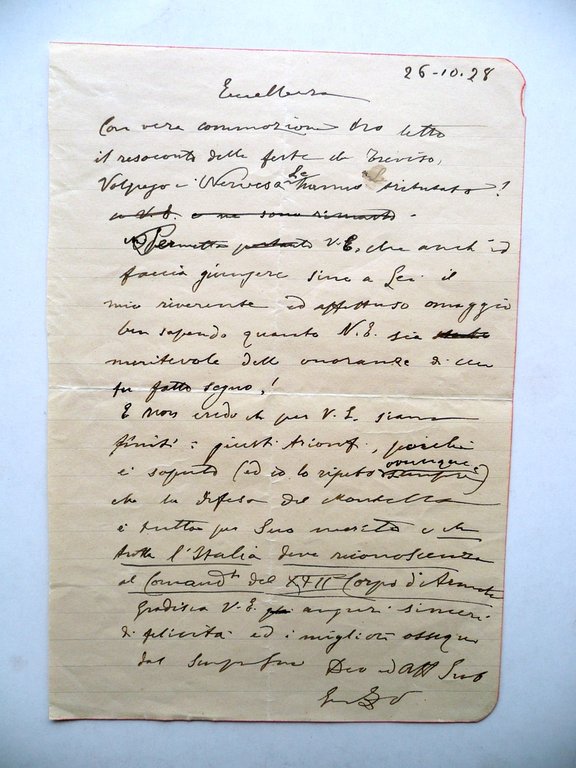 26-10-28
Eccellenza
Con vera commozione ho letto
il resoconto delle feste di Treviso,
Volpago e Nervesa le hanno tributato!
a V.E. e ne sono rimasto
Permetta pertanto V.E. che anch'io
faccia giungere sino a Lei il
mio riverente ed affettuoso omaggio
ben sapendo quanto V.E. sia
meritevole delle onoranze di cui
fu fatto segno!
E non credo che per V.E. siano
finiti i giusti trionfi, perché
è saputo (ed io lo ripeto ovunque sempre)
che la difesa del Montello
è tutto per Suo merito e che
tutta l'Italia deve riconoscenza
al Comandte del XXII Corpo d'Armata
Gradisca V.E. auguri sinceri
di felicità ed i migliori ossequi
dal Suo Dev ed Aff